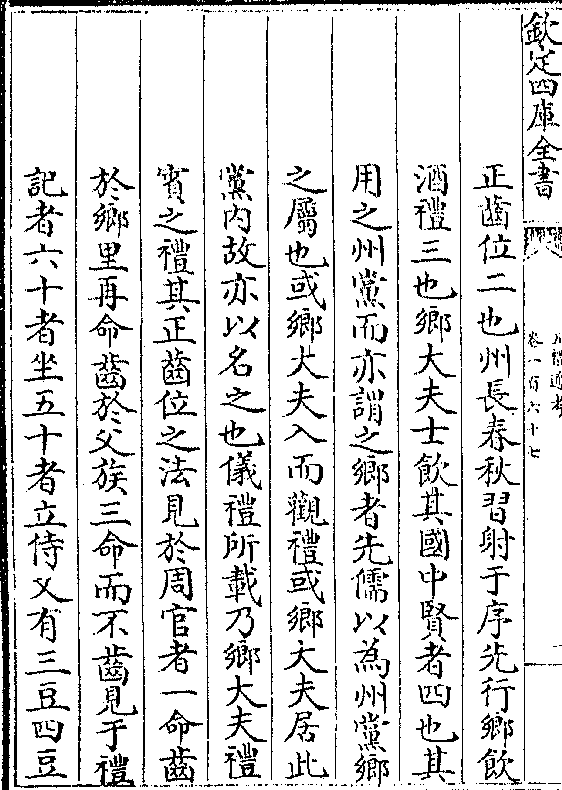 欽定四庫全書
五禮通考
卷一百六十七
正齒位二也州長春秋習射于序先行鄉飲
酒禮三也鄉大夫士飲其國中賢者四也其
用之州黨而亦謂之鄉者先儒以為州黨鄉
之屬也或鄉大夫入而觀禮或鄉大夫居此
黨內故亦以名之也儀禮所載乃鄉大夫禮
賓之禮其正齒位之法見於周官者一命齒
於鄉里再命齒於父族三命而不齒見于禮
記者六十者坐五十者立侍又有三豆四豆